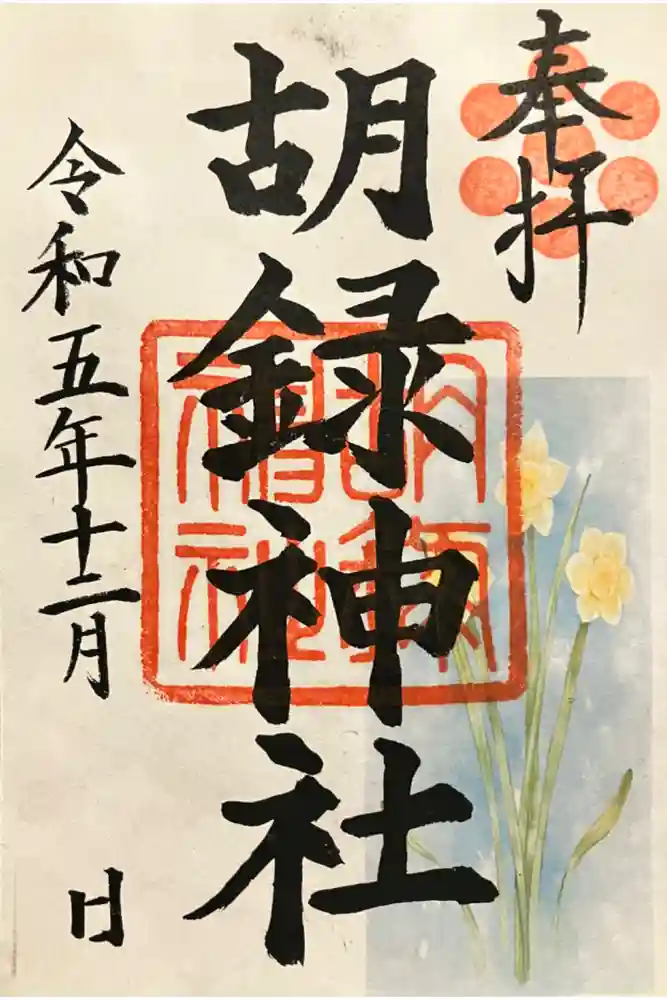 奉拝
胡録神社
令和五年十二月　日